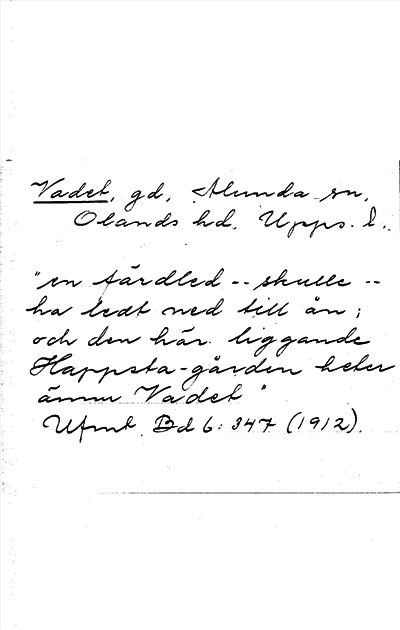 Vadet, gd, Alunda sn,
Olands hd. Upps. l.
"en färdled -- skulle --
ha ledt ned till ån;
och den här liggande
Happsta-gården heter
ännu Vadet"
Ufmt. Bd 6: 347 (1912).